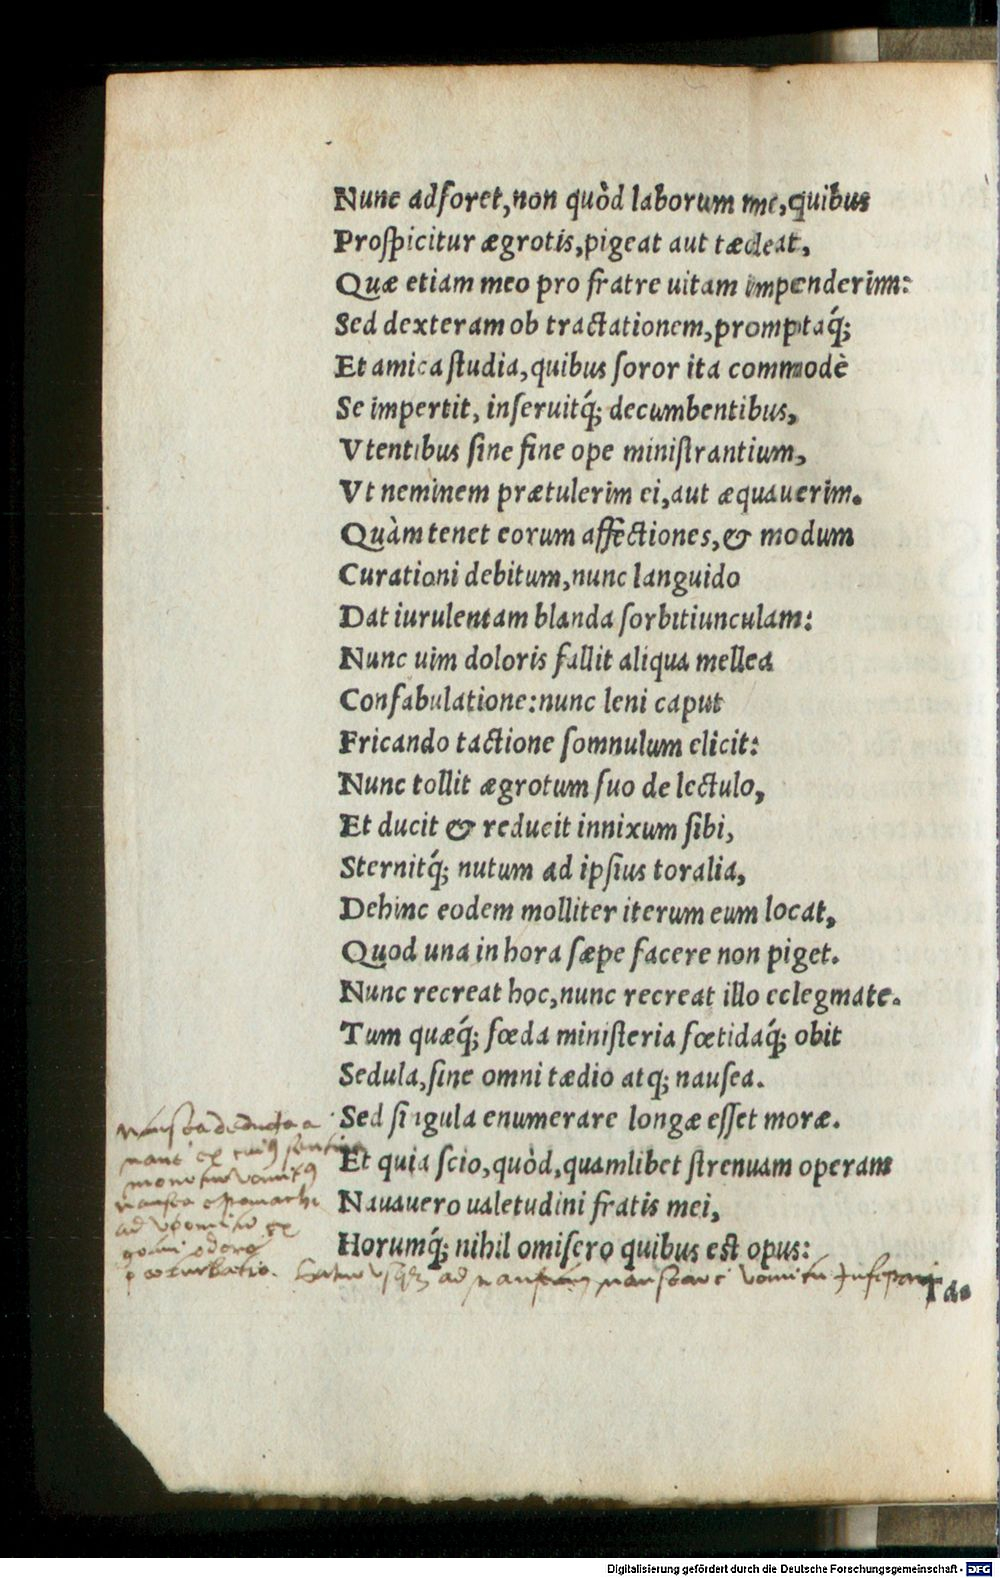 Nunc adforet, non quòd laborum me, quibus
Proſpicitur ægrotis, pigeat aut tædeat,
Quæ etiam meo pro fratre uitam impenderim:
Sed dexteram ob tractationem, promptaq́;
Et amica ſtudia, quibus ſoror ita commodè
Se impertit, inſeruitq́; decumbentibus,
Vtentibus ſine fine ope miniſtrantium,
Vt neminem prætulerim ei, aut æquauerim.
Quàm tenet eorum affectiones, & modum
Curationi debitum, nunc languido
Dat iurulentam blanda ſorbitiunculam:
Nunc uim doloris fallit aliqua mellea
Confabulatione: nunc leni caput
Fricando tactione ſomnulum elicit:
Nunc tollit ægrotum ſuo de lectulo,
Et ducit & reducit innixum ſibi,
Sternitq́; nutum ad ipſius toralia,
Dehinc eodem molliter iterum eum locat,
Quod una in hora ſæpe facere non piget.
Nunc recreat hoc, nunc recreat illo eclegmate.
Tum quæq́; fœda miniſteria fœtidaq́; obit
Sedula, ſine omni tædio atq; nauſea.
Sed ſingula enumerare longæ eſſet moræ.
Et quia ſcio, quòd, quamlibet ſtrenuam operam
Nauauero ualetudini fratis mei,
Horumq́; nihil omiſero quibus eſt opus:
nausea deducta a
ad vomitum ex
ad nauseam nauseare vomitu
Id.
Digitalisierung gefördert durch die Deutsche Forschungsgemeinschaft - DFG